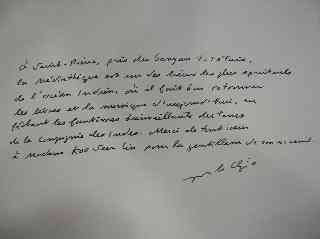 À Saint-Pierre, près des banyans tutélaires,
la médiathèque est un des lieux les plus spirituels
de l'océan Indien, où il fait bon retrouver
les livres et la musique d'aujourd'hui, en
fêtant les fantômes bienveillants du temps
de la Compagnie des Indes. Merci de tout cœur
à madame Koo Seen Lin pour la gentillesse de son accueil.